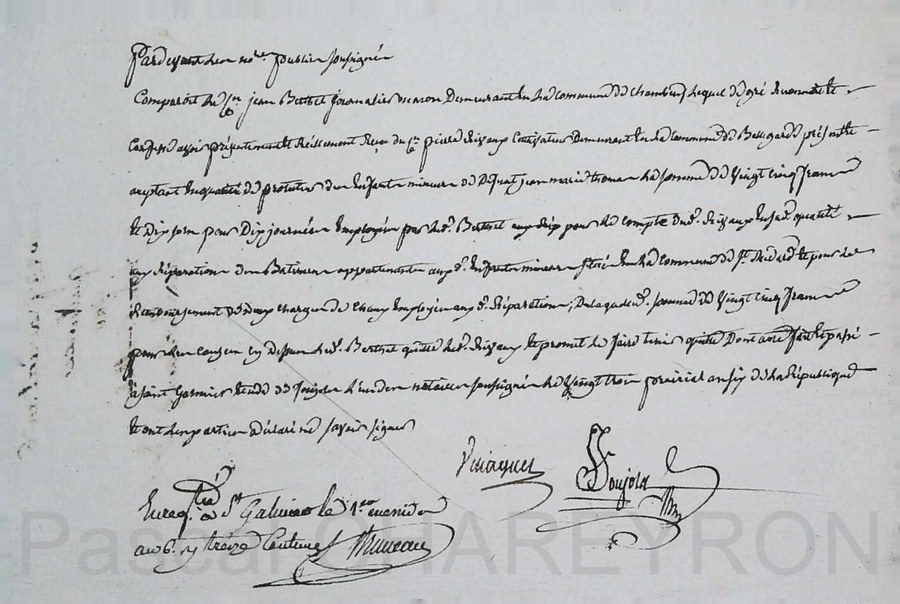 Pardevant les not.res publics soussignés
Comparoit le C.en jean Berthet journalier maçon Demeurant en la commune de chambeuf lequel de gré reconnoit et
Confesse avoir présentement et réellement Reçu du C.en pierre Cultivateur Demeurant en la commune de Bellegarde présent et
acceptant en qualité de protuteur des Enfants mineurs de Defunt jean marie thomas la somme de Vingt Cinq francs
et Dix sous pour Dix journées Employées par led. Berthet pour le compte dud. en sad. qualité
aux réparations des Batimens appartenants auxd. Enfants mineurs située En la commune de St. et pour le
Remboursement de deux charges de chaux Employées auxd. Réparations ; De laquelle d. somme de Vingt Cinq francs
pour les causes cy dessus led. Berthet quitte led. et promet le faire tenir quitte Dont acte fait et passé
à saint Galmier étude de l'un des notaires soussignés le Vingt trois prairial an six de la République
et ont les parties déclaré ne savoir signer
Enreg.tré à St Galmier le 1.er messidor
an 6. r/ treize Centimes
Pascal CHAREYRON